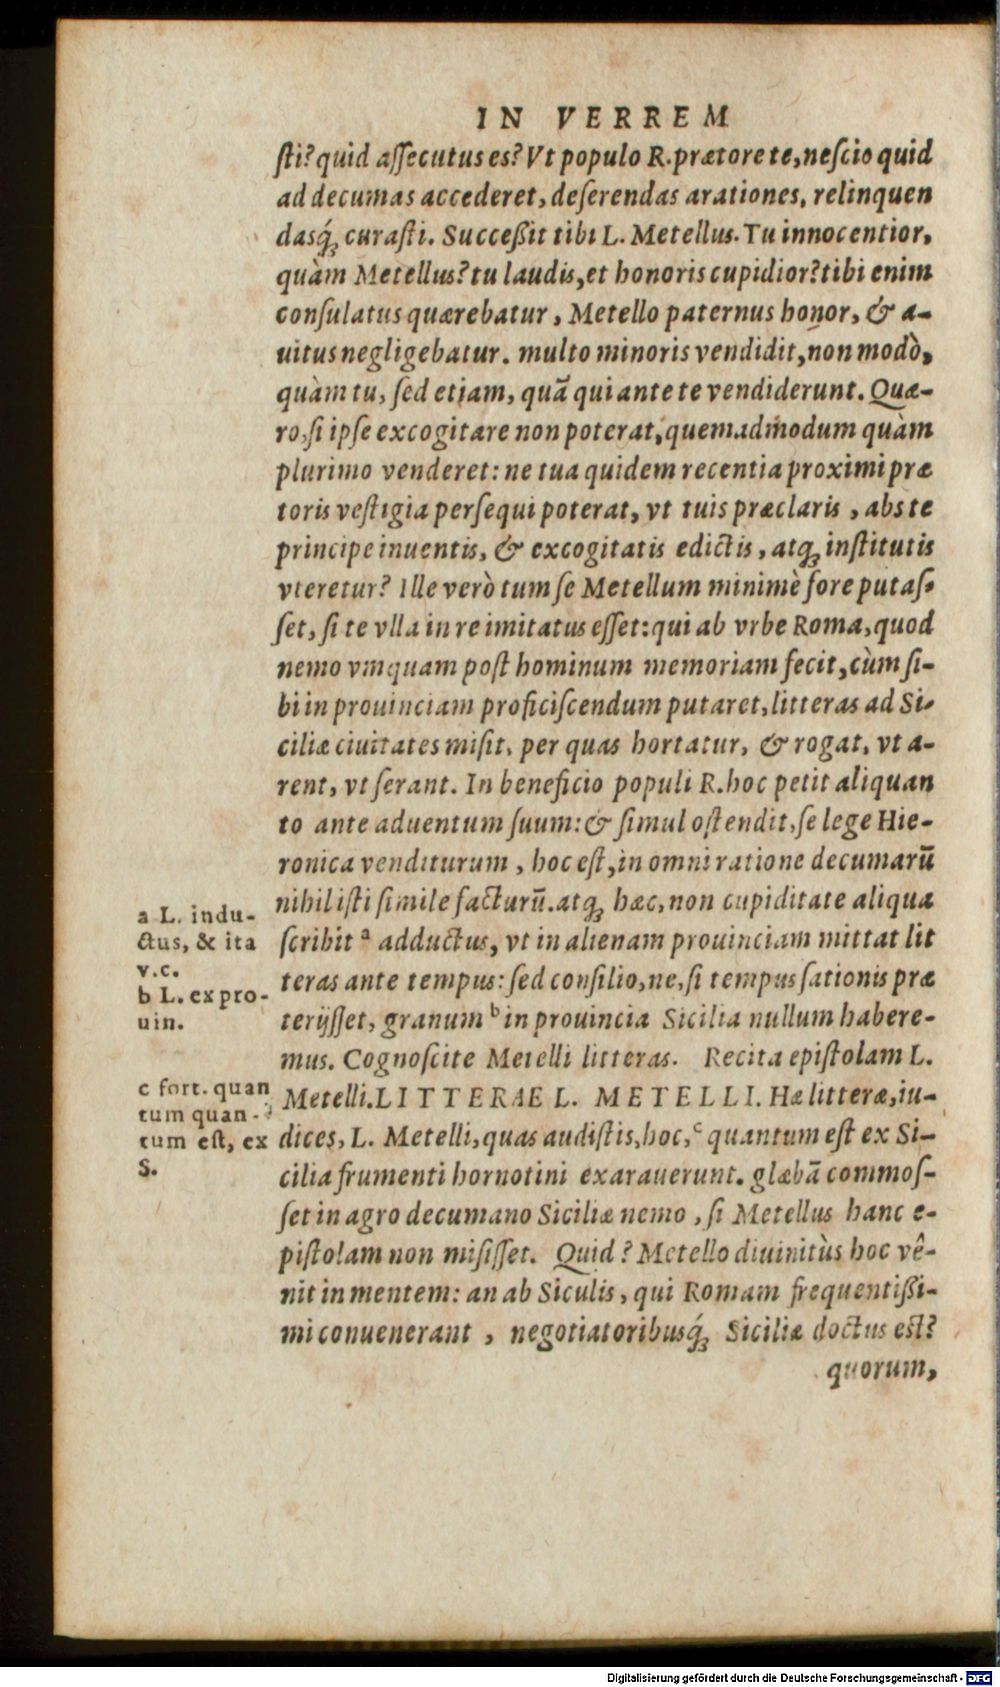 IN VERREM
sti? quid assecutus es? Vt populo R. prætore te, nescio quid
ad decumas accederet, deserendas arationes, relinquen
dasq́; curasti. Succeßit tibi L. Metellus. Tu innocentior,
quàm Metellus? tu laudis, et honoris cupidior? tibi enim
consulatus quærebatur, Metello paternus honor, & a-
uitus negligebatur. multo minoris vendidit, non modò,
quàm tu, sed etiam, quã qui ante te vendiderunt. Quæ-
ro, si ipse excogitare non poterat, quemadmodum quàm
plurimo venderet: ne tua quidem recentia proximi præ
toris vestigia persequi poterat, vt tuis præclaris, abs te
principe inuentis, & excogitatis edictis, atq; institutis
vteretur? Ille verò tum se Metellum minimè fore putas-
set, si te vlla in re imitatus esset: qui ab vrbe Roma, quod
nemo vmquam post hominum memoriam fecit, cùm si-
bi in prouinciam proficiscendum putaret, litteras ad Si-
ciliæ ciuitates misit, per quas hortatur, & rogat, vt a-
rent, vt serant. In beneficio populi R. hoc petit aliquan
to ante aduentum suum: & simul ostendit, se lege Hie-
ronica venditurum, hoc est, in omni ratione decumarũ
nihil isti simile facturũ. atq; hæc, non cupiditate aliqua
scribit a adductus, vt in alienam prouinciam mittat lit
teras ante tempus: sed consilio, ne, si tempus sationis præ
terijsset, granum b in prouincia Sicilia nullum habere-
mus. Cognoscite Metelli litteras. Recita epistolam L.
Metelli. LITTERAE L. METELLI. Hæ litteræ, iu-
dices, L. Metelli, quas audistis, hoc, c quantum est ex Si-
cilia frumenti hornotini exarauerunt. glæbã commos-
set in agro decumano Siciliæ nemo, si Metellus hanc e-
pistolam non misisset. Quid? Metello diuinitùs hoc vê-
nit in mentem: an ab Siculis, qui Romam frequentißi-
mi conuenerant, negotiatoribusq́; Siciliæ doctus est?
quorum,
a L. indu-
ctus, & ita
v.c.
b L. ex pro-
uin.
c fort. quan
tum quan-
tum est, ex
S.
Digitalisierung gefördert durch die Deutsche Forschungsgemeinschaft - DFG